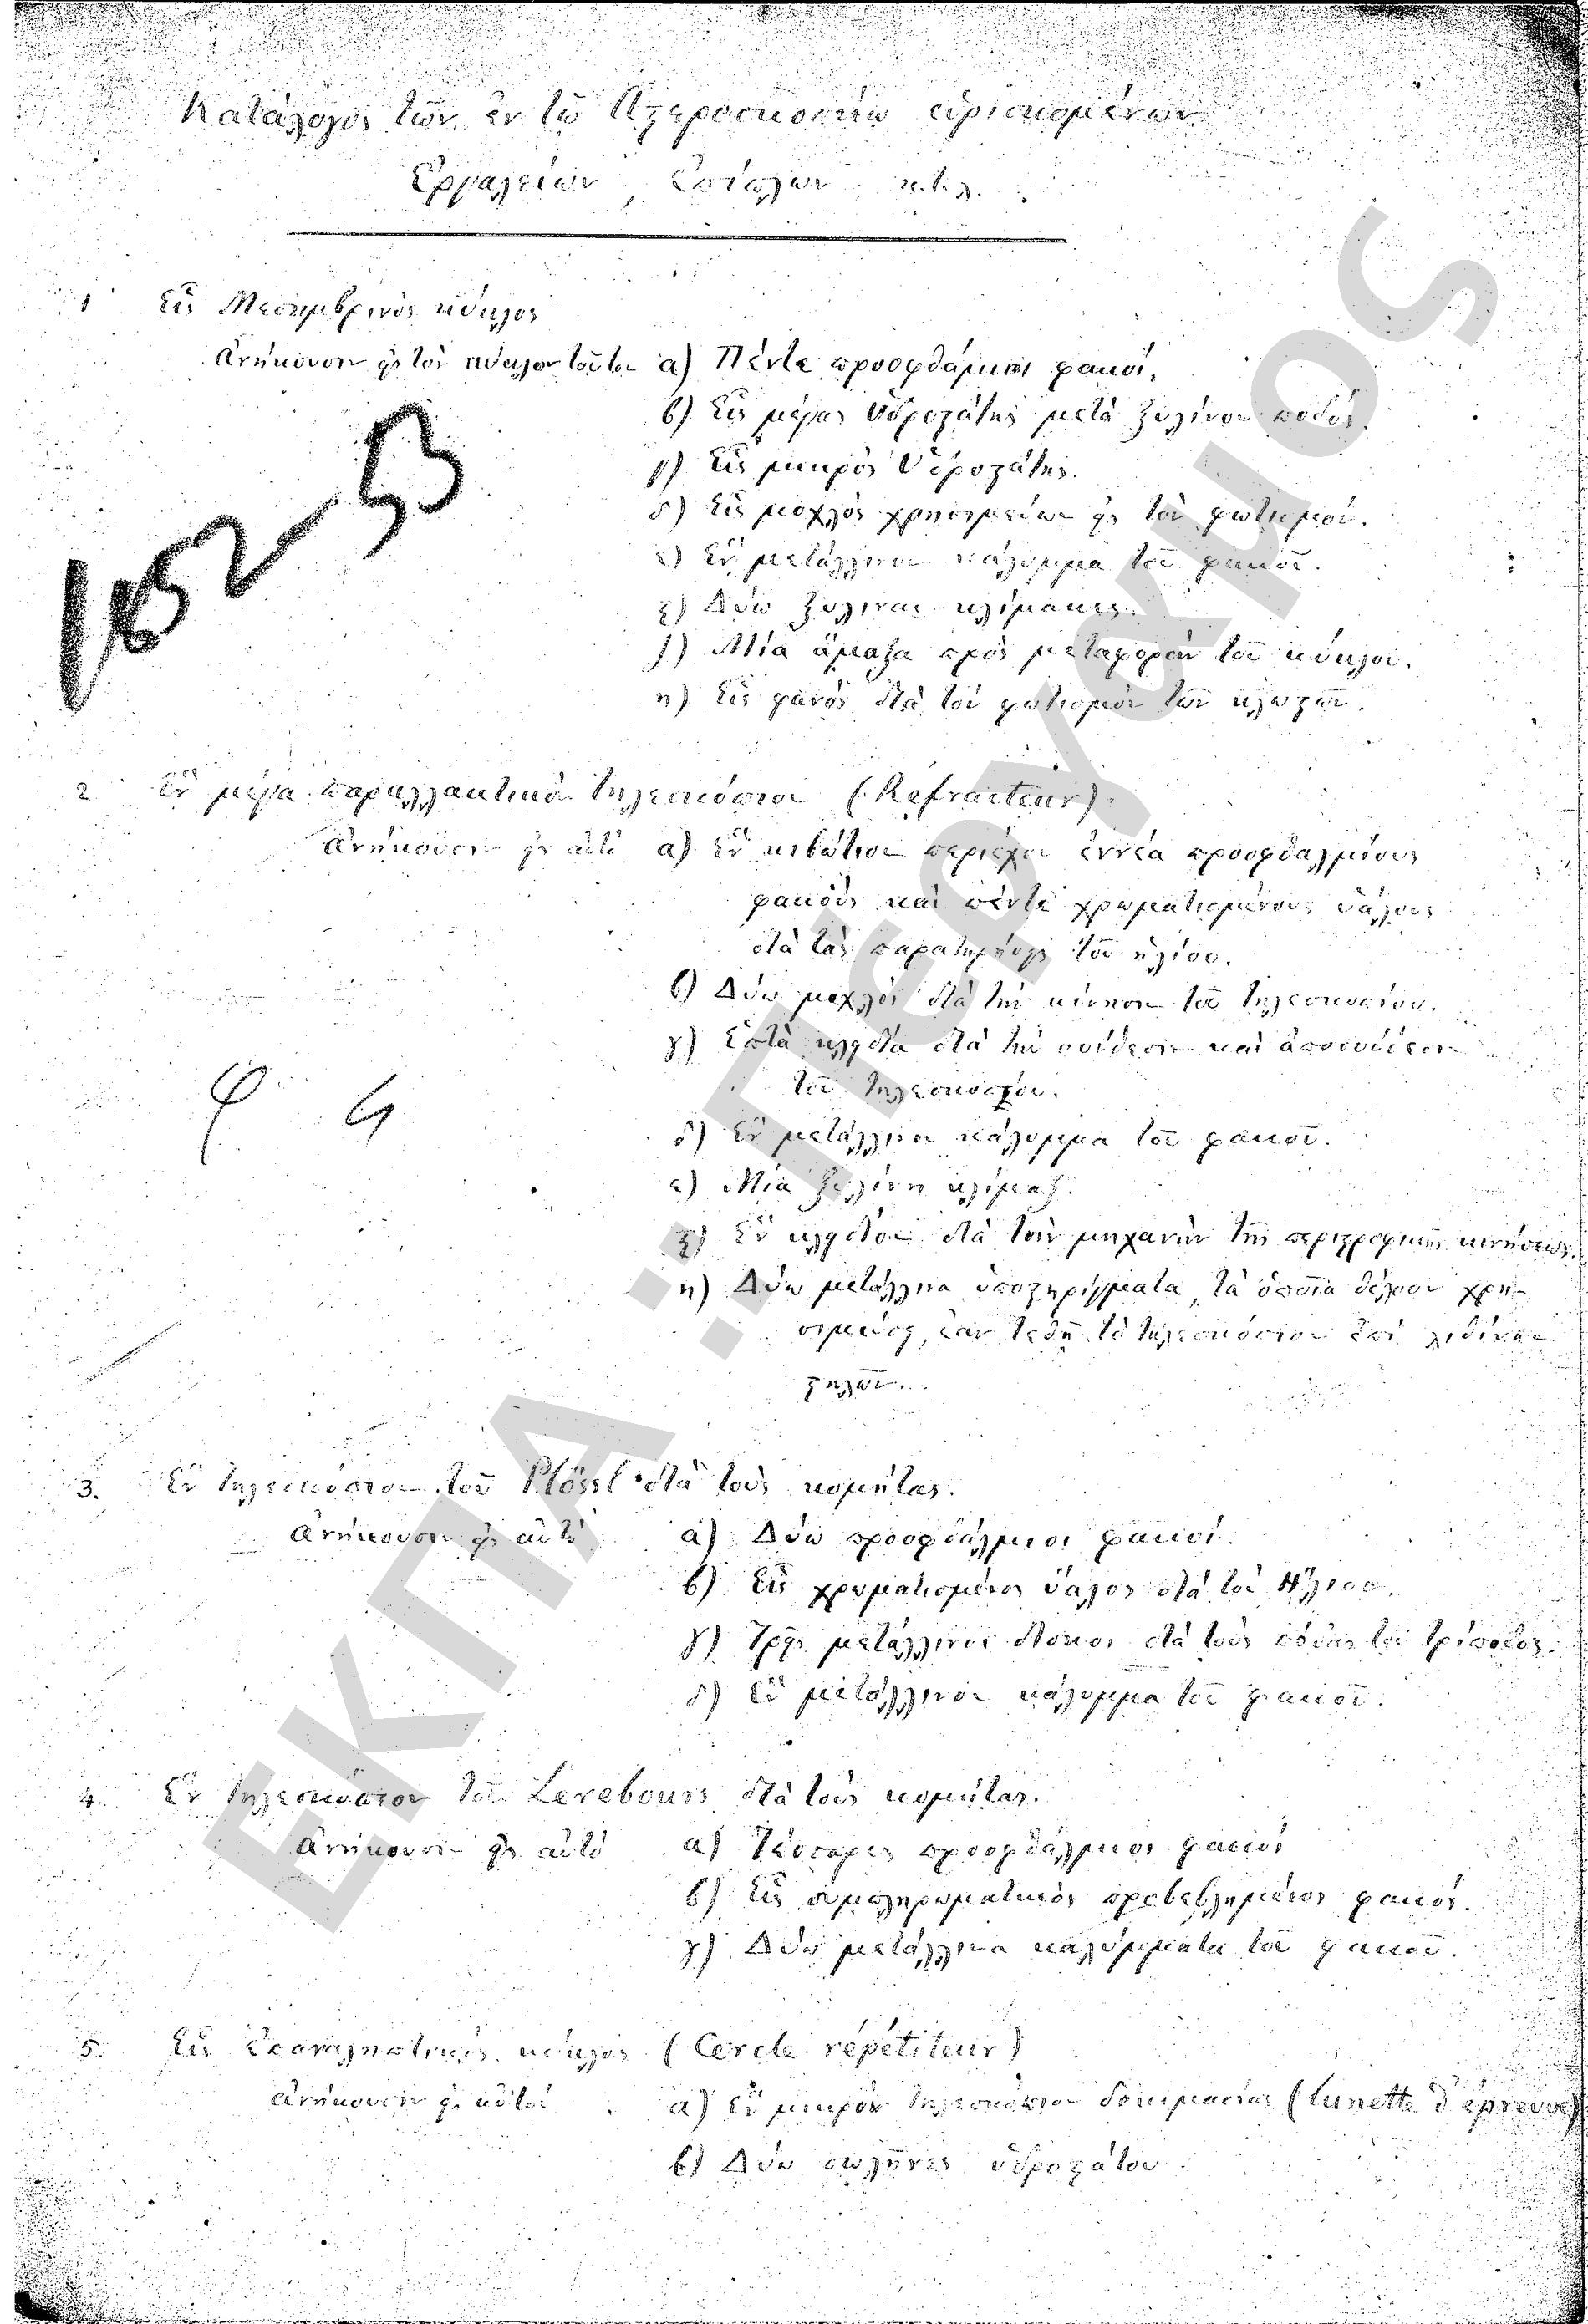 Κατάλογος τῶν ἐν τῷ Ἀστεροσκοπείῳ εὑρισκομένων
Ἐργαλείων, Ἐπίπλων κ.τ.λ.
1 Εἷς Μεσημβρινὸς κύκλος
Ἀνήκουσιν εἰς τὸν κύκλον τοῦτον α) Πέντε προσφθάλμιοι φακοί.
β) Εἷς μέγας ὑδροστάτης μετὰ ξυλίνου ποδός.
γ) Εἷς μικρὸς ὑδροστάτης.
δ) Εἷς μοχλὸς χρησιμεύων εἰς τὸν φωτισμόν.
ε) Ἓν μετάλλινον κάλυμμα τοῦ φακοῦ.
ϛ) Δύω ξύλιναι κλίμακες.
ζ) Μία ἅμαξα πρὸς μεταφορὰν τοῦ κύκλου.
η) Εἷς φανὸς διὰ τὸν φωτισμὸν τῶν κλωστῶν.
1852-53
2 Ἓν μέγα παραλλακτικὸν τηλεσκόπιον (Réfracteur).
Ἀνήκουσιν εἰς αὐτὸ α) Ἓν κιβώτιον περιέχον ἐννέα προσφθαλμίους
φακοὺς καὶ πέντε χρωματισμένους ὑάλους
διὰ τὰς παρατηρήσεις τοῦ ἡλίου.
β) Δύω μοχλοὶ διὰ τὴν κίνησιν τοῦ τηλεσκοπίου.
γ) Ἑπτὰ κλειδία διὰ τὴν σύνθεσιν καὶ ἀποσύνθεσιν
τοῦ τηλεσκοπίου.
φ 4
δ) Ἓν μετάλλινον κάλυμμα τοῦ φακοῦ.
ε) Μία ξυλίνη κλίμαξ.
ζ) Ἓν κλειδίον διὰ τὴν μηχανὴν τῆς περιστροφικῆς κινήσεως.
η) Δύω μετάλλινα ὑποστηρίγματα, τὰ ὁποῖα θέλουν χρη-
σιμεύσει, ἐὰν τεθῇ τὸ τηλεσκόπιον ἐπὶ λιθίνων
στηλῶν.
3. Ἓν τηλεσκόπιον τοῦ Plössl διὰ τοὺς κομήτας.
Ἀνήκουσιν εἰς αὐτὸ α) Δύω προσφθάλμιοι φακοί.
β) Εἷς χρωματισμένος ὕαλος διὰ τὸν Ἥλιον.
γ) Τρεῖς μετάλλινοι δίσκοι διὰ τοὺς πόδας τοῦ τρίποδος.
δ) Ἓν μετάλλινον κάλυμμα τοῦ φακοῦ.
4 Ἓν τηλεσκόπιον τοῦ Lerebours διὰ τοὺς κομήτας.
Ἀνήκουσιν εἰς αὐτὸ α) Τέσσαρες προσφθάλμιοι φακοί
β) Εἷς συμπληρωματικὸς προβεβλημένος φακός.
γ) Δύω μετάλλινα καλύμματα τοῦ φακοῦ.
5. Εἷς Ἐπαναληπτικὸς κύκλος (Cercle répétiteur)
Ἀνήκουσιν εἰς αὐτὸν α) Ἓν μικρὸν τηλεσκόπιον δοκιμασίας (lunette d'épreuve)
β) Δύω σωλῆνες ὑδροστάτου.
ΕΚΠΑ : Πέργαμος